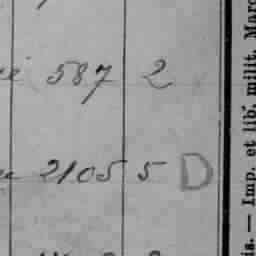 587 2
2105 5 D
is. — Imp. et lib. milit. Marc